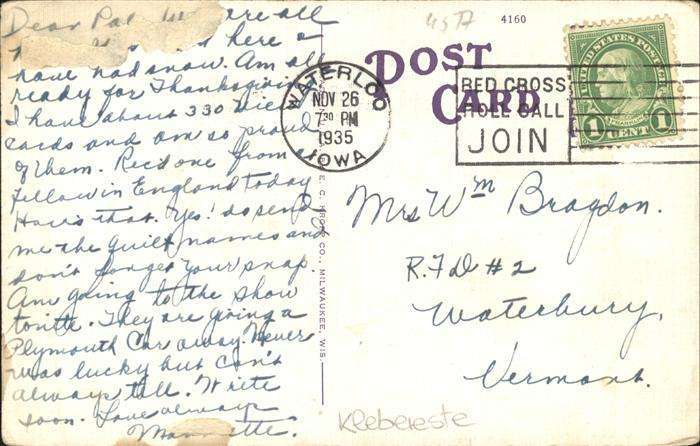 Dear Pal
are all
here &
have had snow. Am all
ready for Thanksgiving
I have about 330 View
cards and am so proud
of them. Rec'd one from a
fellow in England today
How's that. Yes! do send
me the quilt names and
don't forget your snap.
Am going to the show
tonite. They are giving a
Plymouth Car away. Never
was lucky but can't
always tell. Write
soon. Love always
4160
POST
CARD
WATERLOO
NOV 26
7 30 PM
1935
IOWA
RED CROSS
ROLL CALL
JOIN
UNITED STATES POSTAGE
FRANKLIN
1 CENT 1
E. C. KROPP CO., MILWAUKEE, WIS.
Mrs Wm Bragdon.
R.F.D # 2
Waterbury,
Vermont.
Klebereste